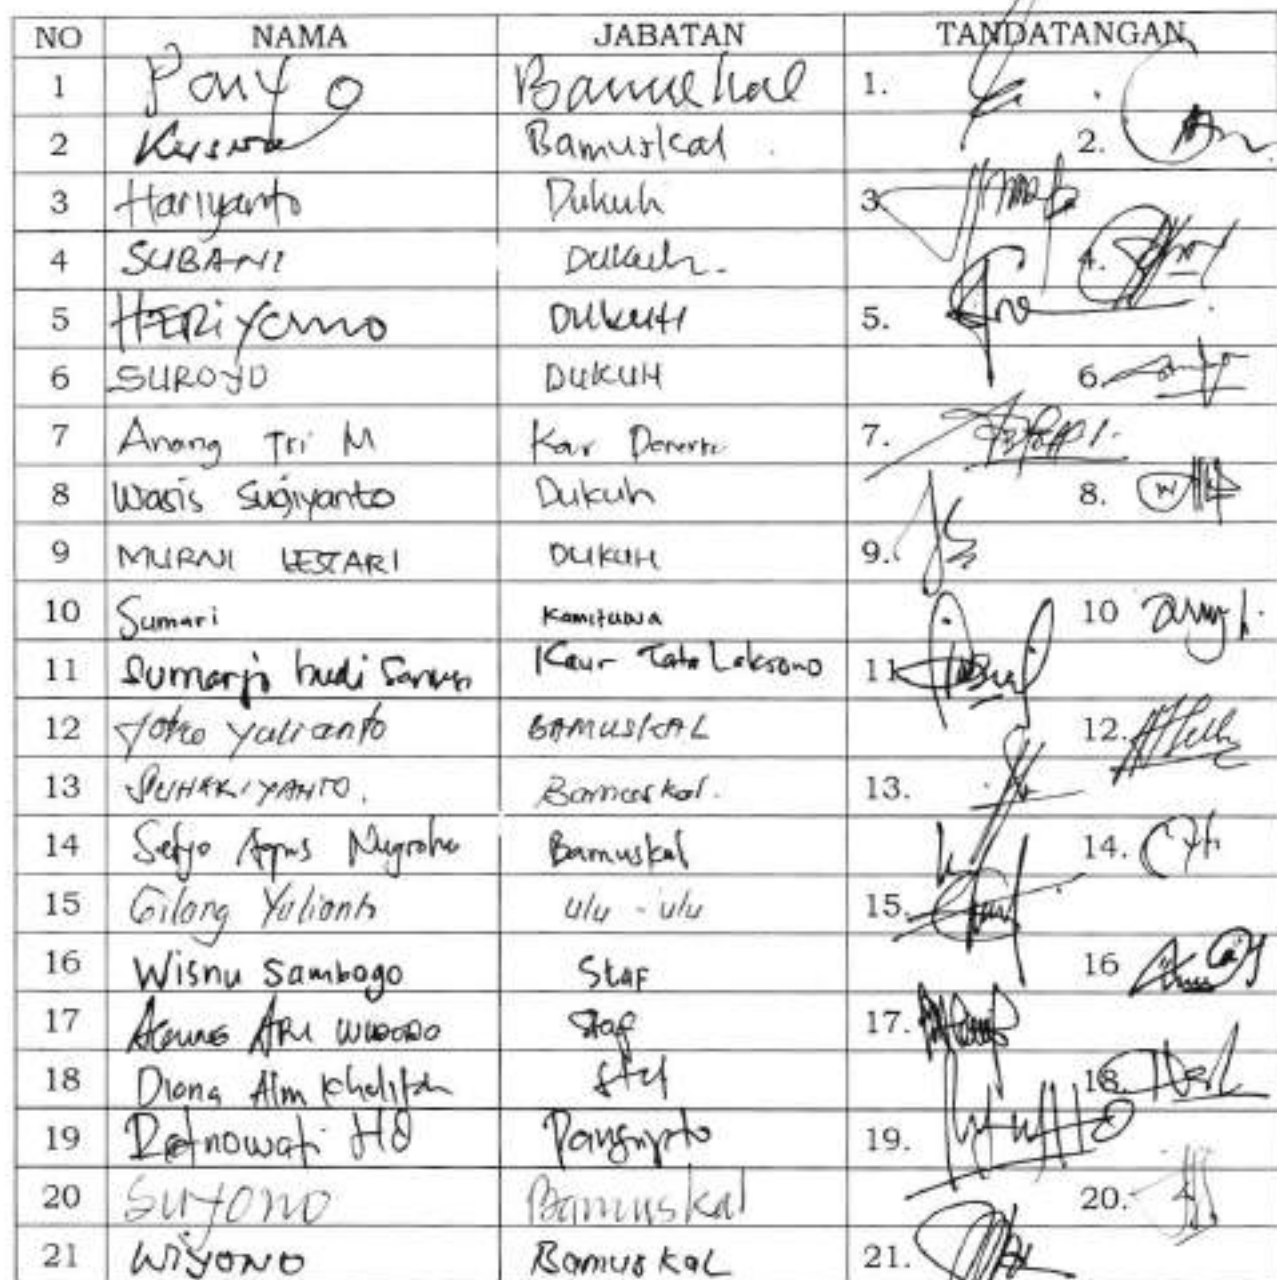 NO NAMA JABATAN TANDATANGAN
1 Ponyo Bamuskal 1.
2 Bamuskal 2.
3 Hariyanto Dukuh 3
4 SUBANI Dukuh. 4.
5 HERiyANO DUKUH 5.
6 SUROYO DUKUH 6.
7 Anang Tri M Kaur Danarta 7.
8 Wasis Sugiyanto Dukuh 8.
9 MURNI LESTARI DUKUH 9.
10 Sumari Kamituwa 10
11 Sumarjo budi Kaur Tata Laksono 11
12 Joko Yulianto BAMUSKAL 12.
13 SUHARIYANTO. Bamuskal. 13.
14 Setyo Agus Nugroho Bamuskal 14.
15 Gilang Yulianto ulu - ulu 15.
16 Wisnu Sambogo Staf 16
17 AGUNG ARI WIDODO Staf 17.
18 Diana Alm Staf 18.
19 Retnowati HD Pangripto 19.
20 SUYONO Bamuskal 20.
21 WIYONO BamuskaL 21.